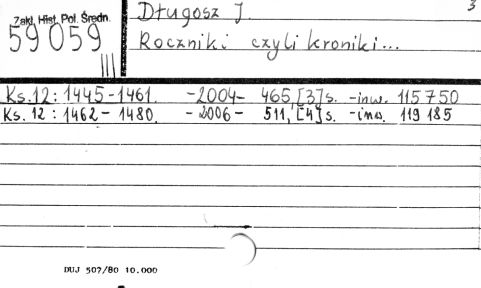 3
Zakł. Hist. Pol. Średn.
59059
Długosz J.
Roczniki czyli kroniki...
Ks. 12: 1445-1461. -2004- 465,[3]s. -inw. 115750
Ks. 12: 1462-1480. -2006- 511,[4]s. -inw. 119185
DUJ 507/80 10.000